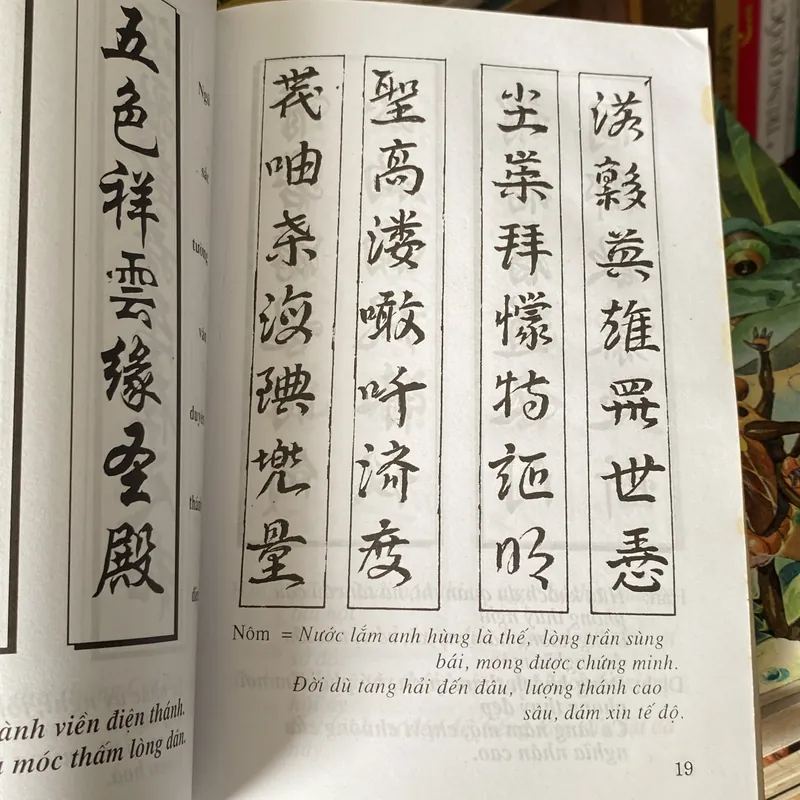 五色祥雲緣圣殿
tường
vân
duyên
thánh
ành viền điện thánh.
móc thấm lòng dân.
渃英雄世
尘崇拜懞特証明
聖高溇噉吀済度
桑海量
Nôm = Nước lắm anh hùng là thế, lòng trần sùng
bái, mong được chứng minh.
Đời dù tang hải đến đâu, lượng thánh cao
sâu, dám xin tế độ.
19